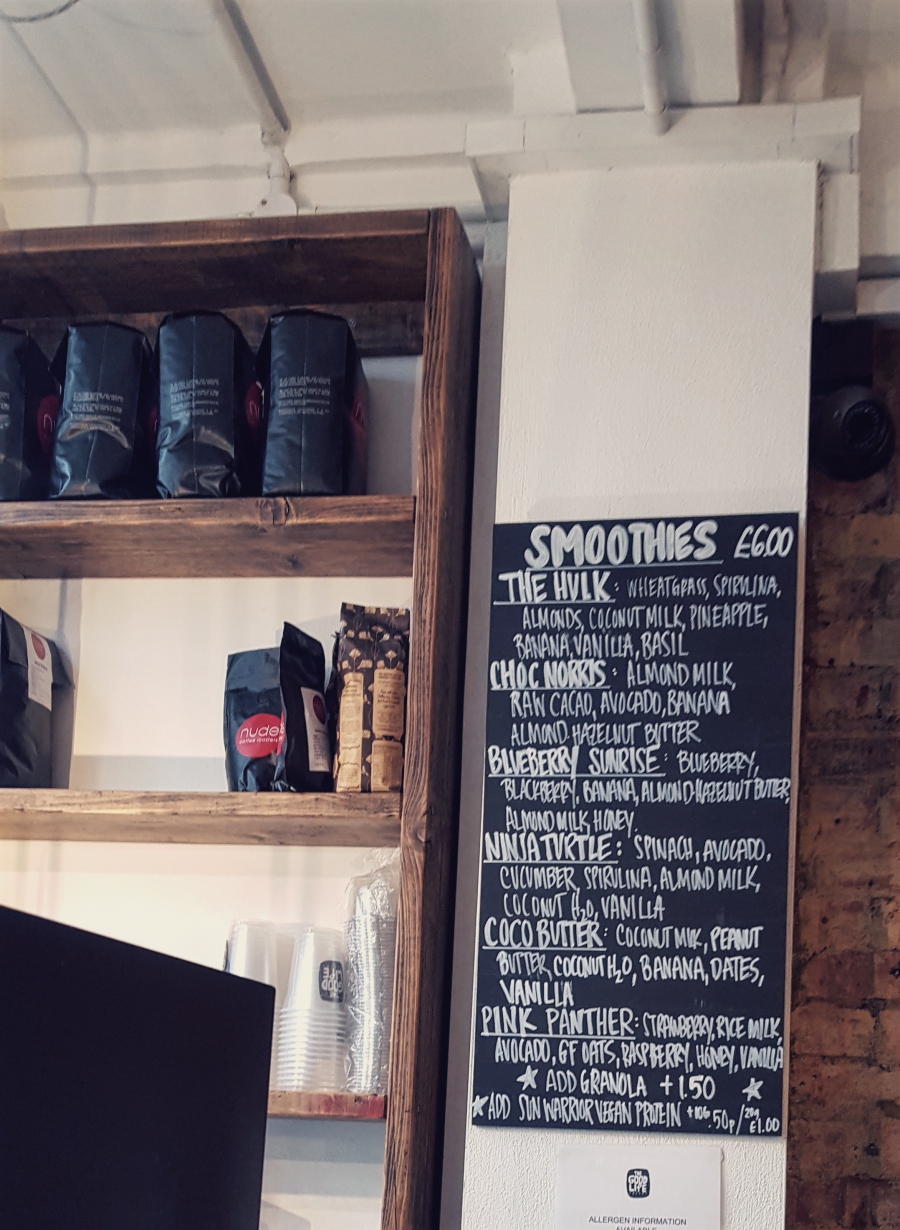 SMOOTHIES £6.00
THE HULK: WHEATGRASS, SPIRULINA,
ALMONDS, COCONUT MILK, PINEAPPLE,
BANANA, VANILLA, BASIL
CHOC NORRIS: ALMOND MILK,
RAW CACAO, AVOCADO, BANANA
ALMOND-HAZELNUT BUTTER
BLUEBERRY SUNRISE: BLUEBERRY,
BLACKBERRY, BANANA, ALMOND-HAZELNUT BUTTER,
ALMOND MILK, HONEY
NINJA TURTLE: SPINACH, AVOCADO,
CUCUMBER, SPIRULINA, ALMOND MILK,
COCONUT H2O, VANILLA
COCO BUTTER: COCONUT MILK, PEANUT
BUTTER, COCONUT H2O, BANANA, DATES,
VANILLA
PINK PANTHER: STRAWBERRY, RICE MILK,
AVOCADO, GF OATS, RASPBERRY, HONEY, VANILLA
ADD GRANOLA +1.50
ADD SUN WARRIOR VEGAN PROTEIN +10G .50p/20g £1.00
nude
coffee roasters
THE
GOOD
LIFE
ALLERGEN INFORMATION
AVAILABLE